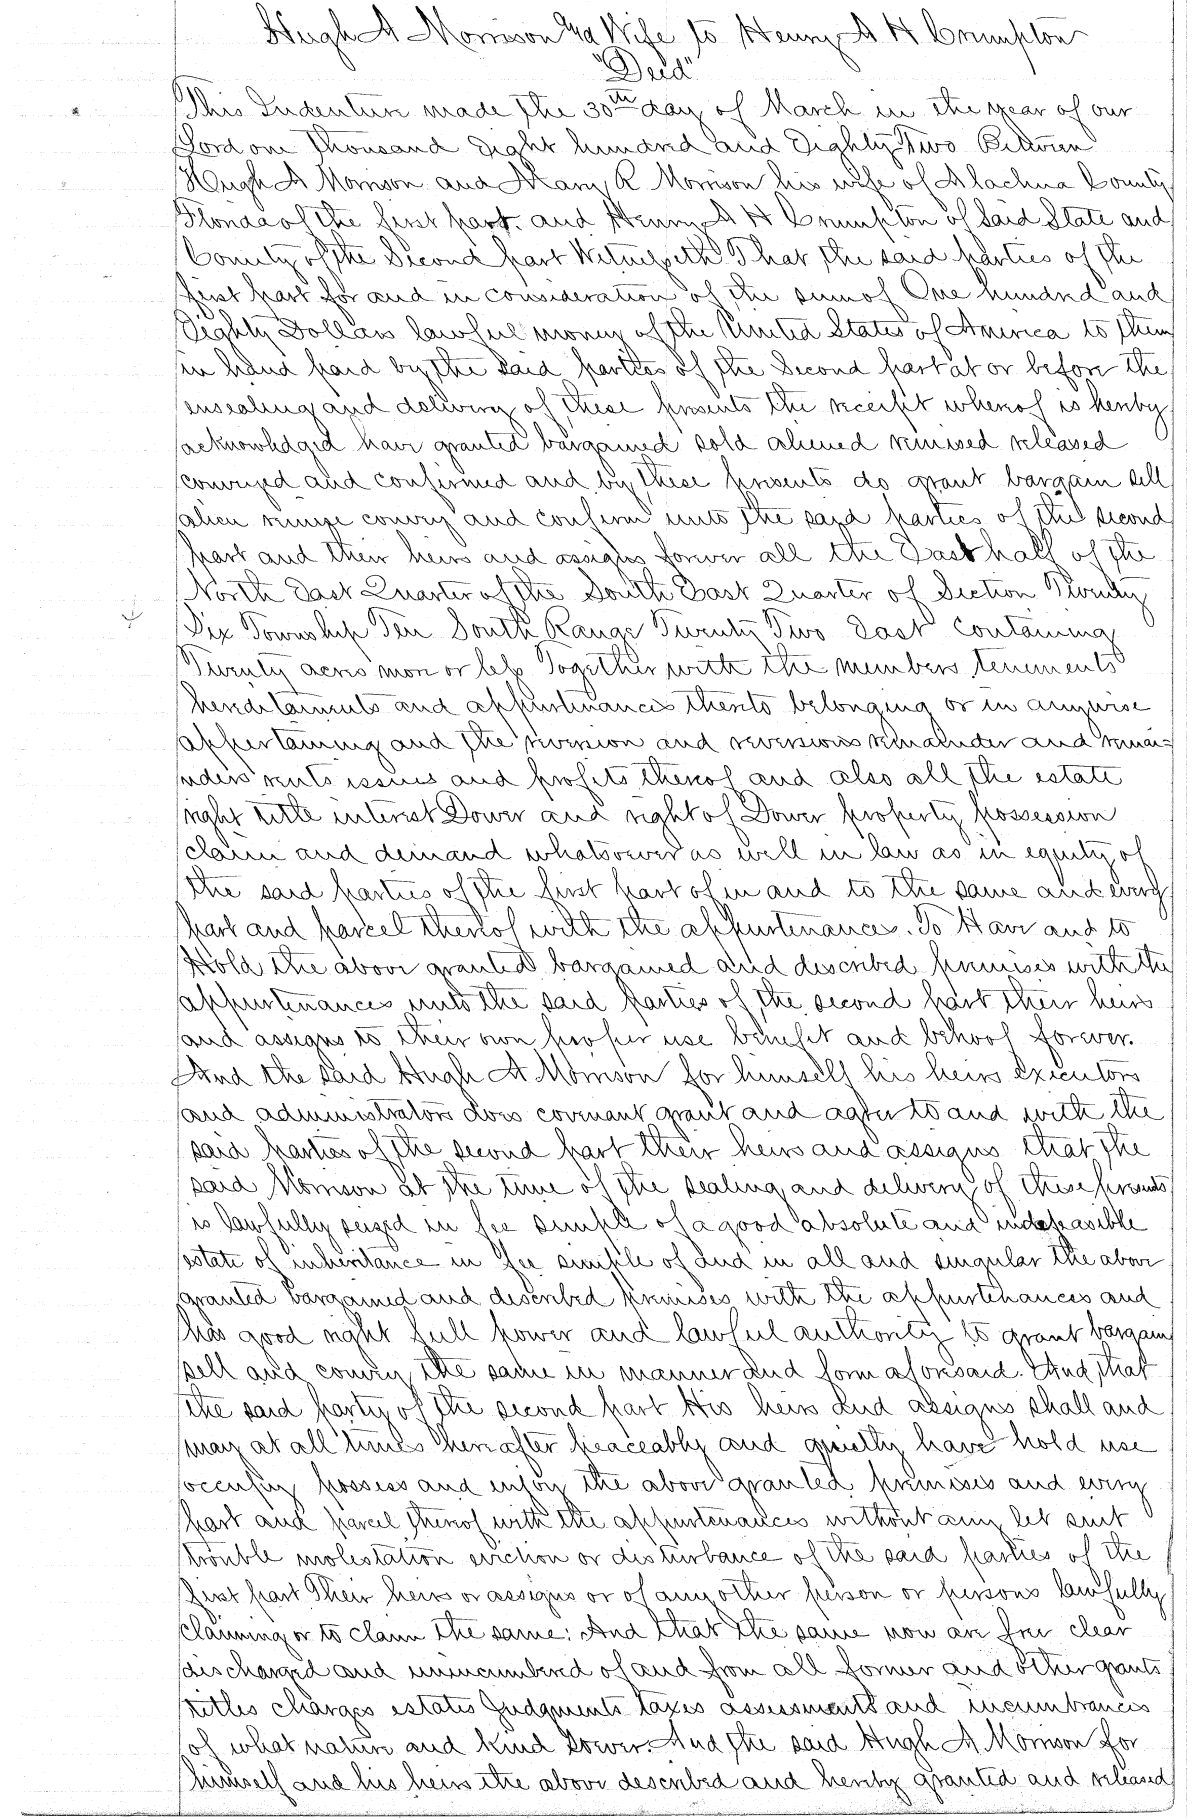 Hugh A Morrison And Wife to Henry A H Crumpton
"Deed"
This Indenture made the 30th day of March in the year of our
Lord one thousand Eight hundred and Eighty Two Between
Hugh A Morrison and Mary R Morrison his wife of Alachua County
Florida of the first part. and Henry A H Crumpton of Said State and
County of the Second part Witnesseth That the said parties of the
first part for and in consideration of the sum of One hundred and
Eighty Dollars lawful money of the United States of America to them
in hand paid by the said parties of the Second part at or before the
ensealing and delivery of these presents the receipt whereof is hereby
acknowledged have granted bargained sold aliened remised released
conveyed and confirmed and by these presents do grant bargain sell
alien remise convey and confirm unto the said parties of the second
part and their heirs and assigns forever all the East half of the
North East Quarter of the South East Quarter of Section Twenty
Six Township Ten South Range Twenty Two East containing
Twenty acres more or less Together with the members tenements
hereditaments and appurtenances thereto belonging or in anywise
appertaining and the reversion and reversions remainder and remai=
nders rents issues and profits thereof and also all the estate
right title interest Dower and right of Dower property possession
claim and demand whatsoever as well in law as in equity of
the said parties of the first part of in and to the same and every
part and parcel thereof with the appurtenances. To Have and to
Hold the above granted bargained and described premises with the
appurtenances unto the said parties of the second part their heirs
and assigns to their own proper use benefit and behoof forever.
And the said Hugh A Morrison for himself his heirs executors
and administrators does covenant grant and agree to and with the
said parties of the second part their heirs and assigns that the
said Morrison at the time of the sealing and delivery of these presents
is lawfully seized in fee simple of a good absolute and indefeasible
estate of inheritance in fee simple of and in all and singular the above
granted bargained and described premises with the appurtenances and
has good right full power and lawful authority to grant bargain
sell and convey the same in manner and form aforesaid. And that
the said party of the second part His heirs and assigns shall and
may at all times hereafter peaceably and quietly have hold use
occupy possess and enjoy the above granted premises and every
part and parcel thereof with the appurtenances without any let suit
trouble molestation eviction or disturbance of the said parties of the
first part Their heirs or assigns or of any other person or persons lawfully
claiming or to claim the same: And that the same now are free clear
discharged and unincumbered of and from all former and other grants
titles charges estates Judgments taxes assessments and incumbrances
of what nature and kind soever. And the said Hugh A Morrison for
himself and his heirs the above described and hereby granted and released